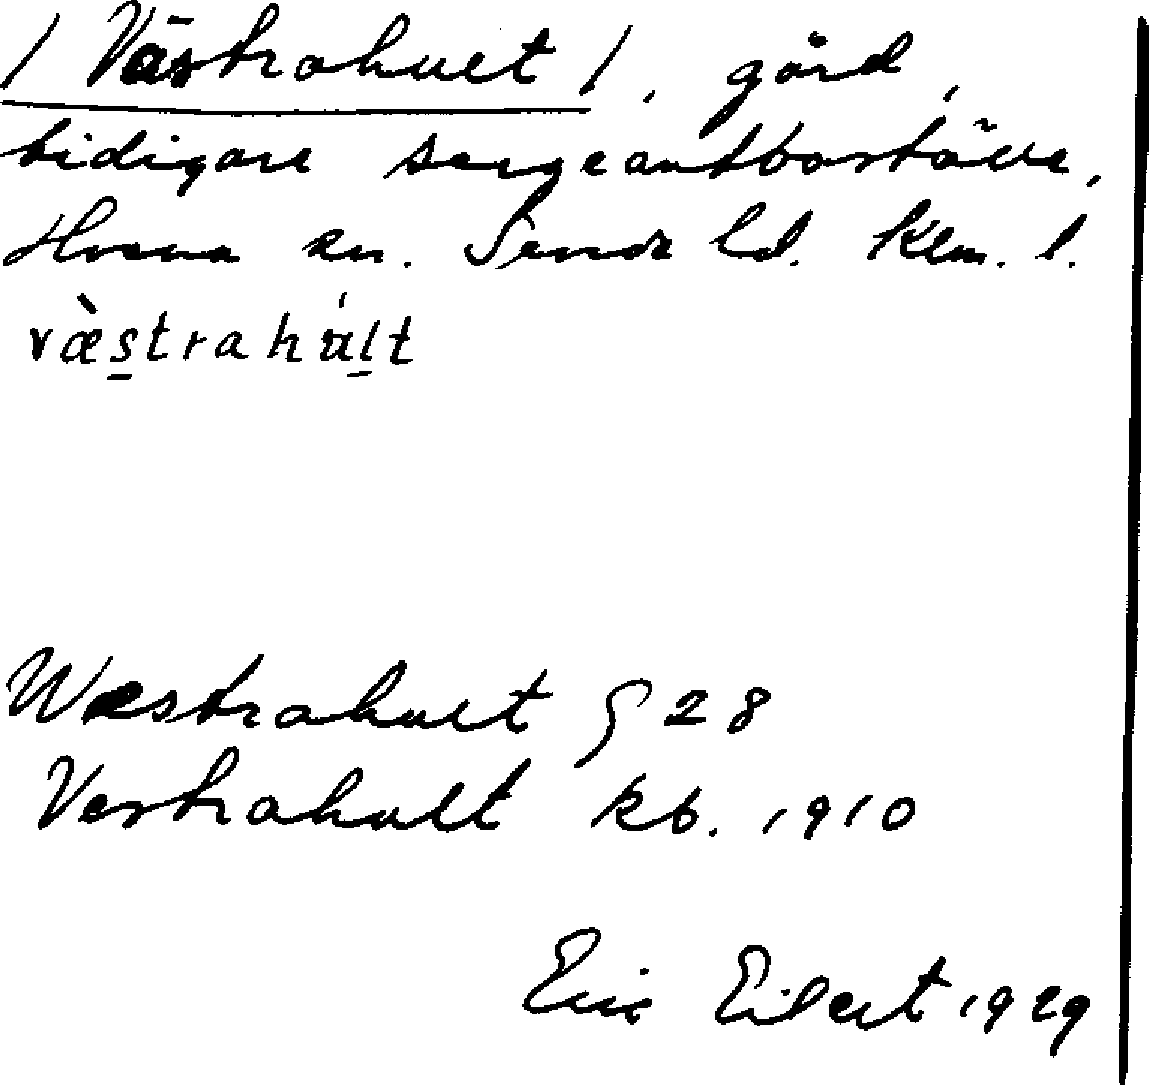 / Västrahult /, gård,
tidigare sergeantboställe,
Hvena sn. Sevede hd. Klm. l.
væ̀s̲trahúl̲t
Wæstrahult G 28
Vestrahult kb. 1910
Eric Eilert 1929